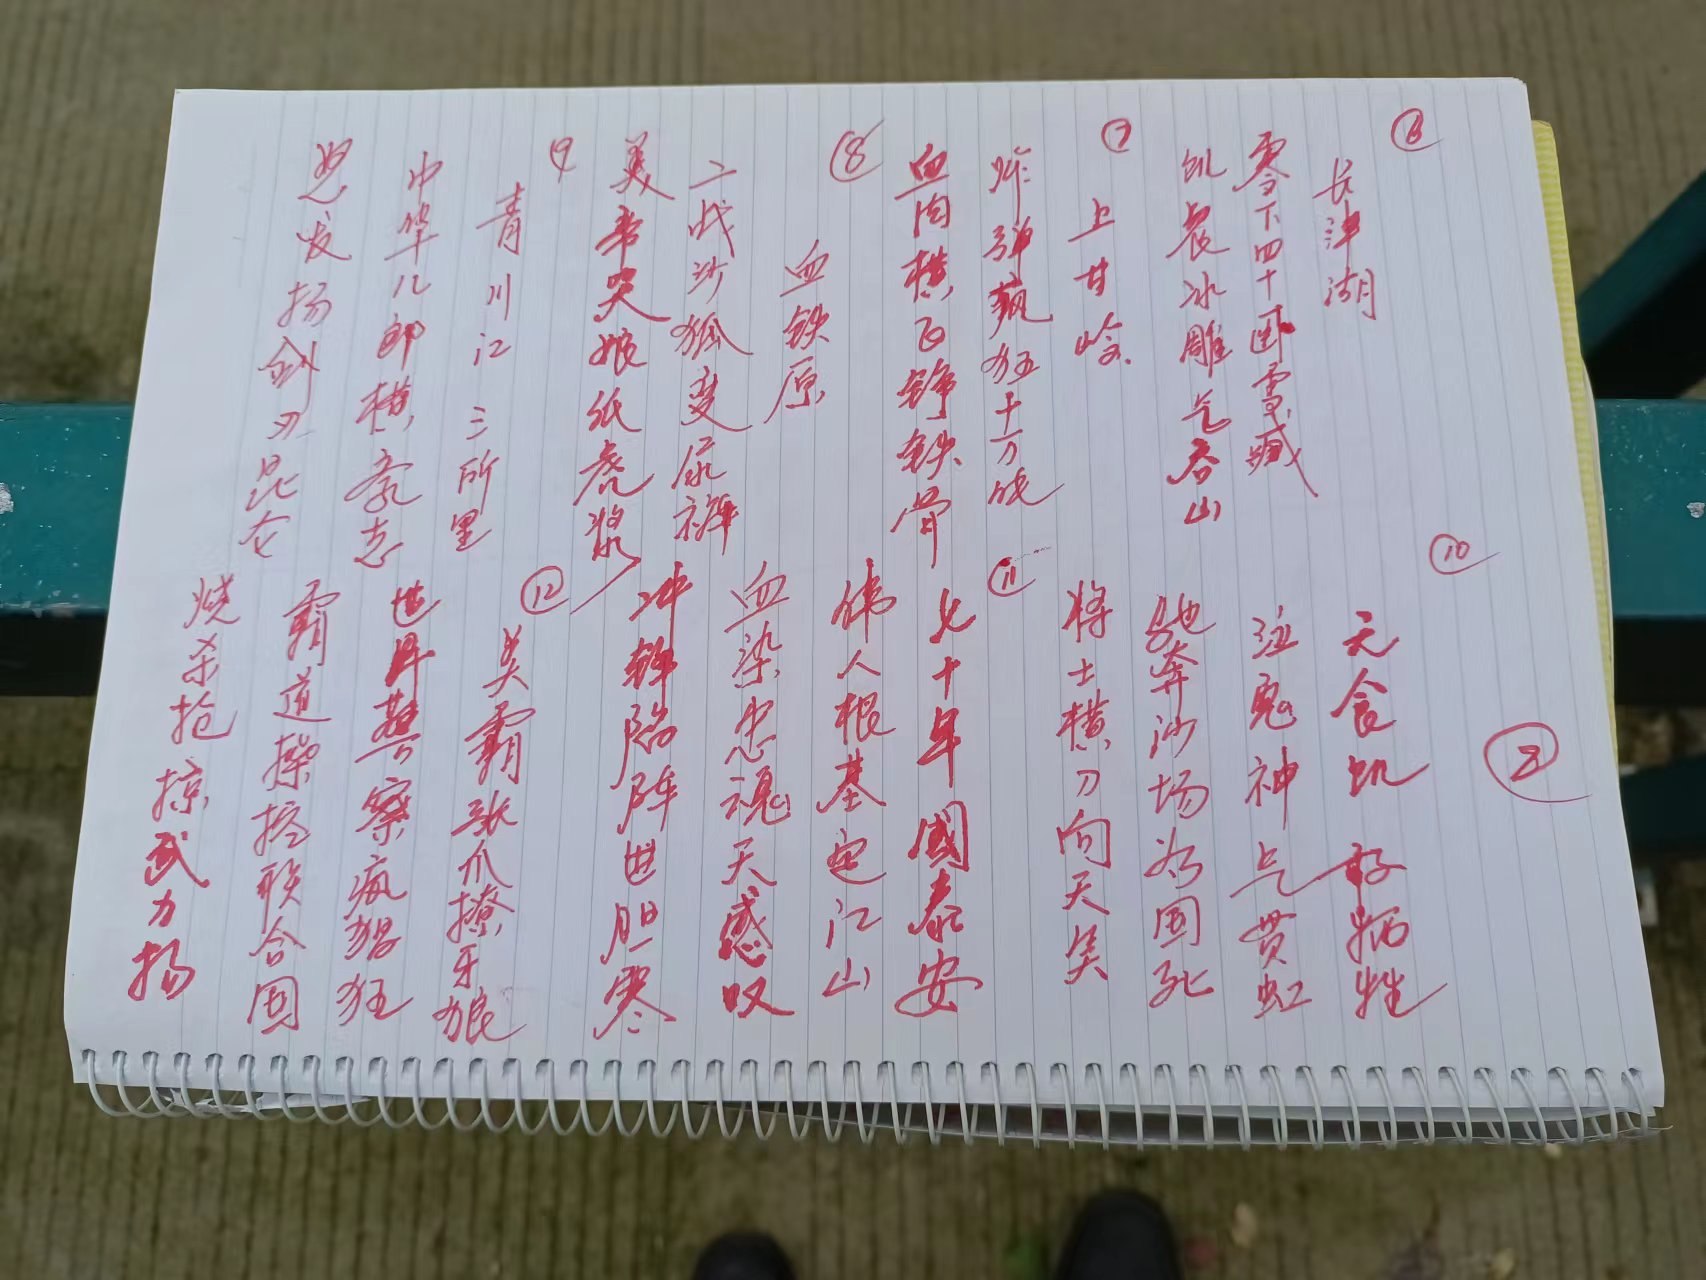 ⑥
长津湖
零下四十困雪臧
饥晨冰雕气吞山
⑦
上甘岭
炸弹疯狂十万吨
血肉横飞铮铁骨
⑧
血铁原
二战沙狐变尿裤
美帝哭娘纸老浆
9
青川江 三所里
中华儿郎横豪志
思发扬剑刃昆仑
②
⑩
无食饥 好病牲
泣鬼神 气贯虹
驰奔沙场为国死
将士横刀向天笑
⑪
七十年国泰安
伟人根基定江山
血染忠魂天感叹
冲锋陷阵世胆寒
⑫
美霸张爪撩牙狼
世界警察疯猖狂
霸道操控联合国
烧杀抢掠武力扬